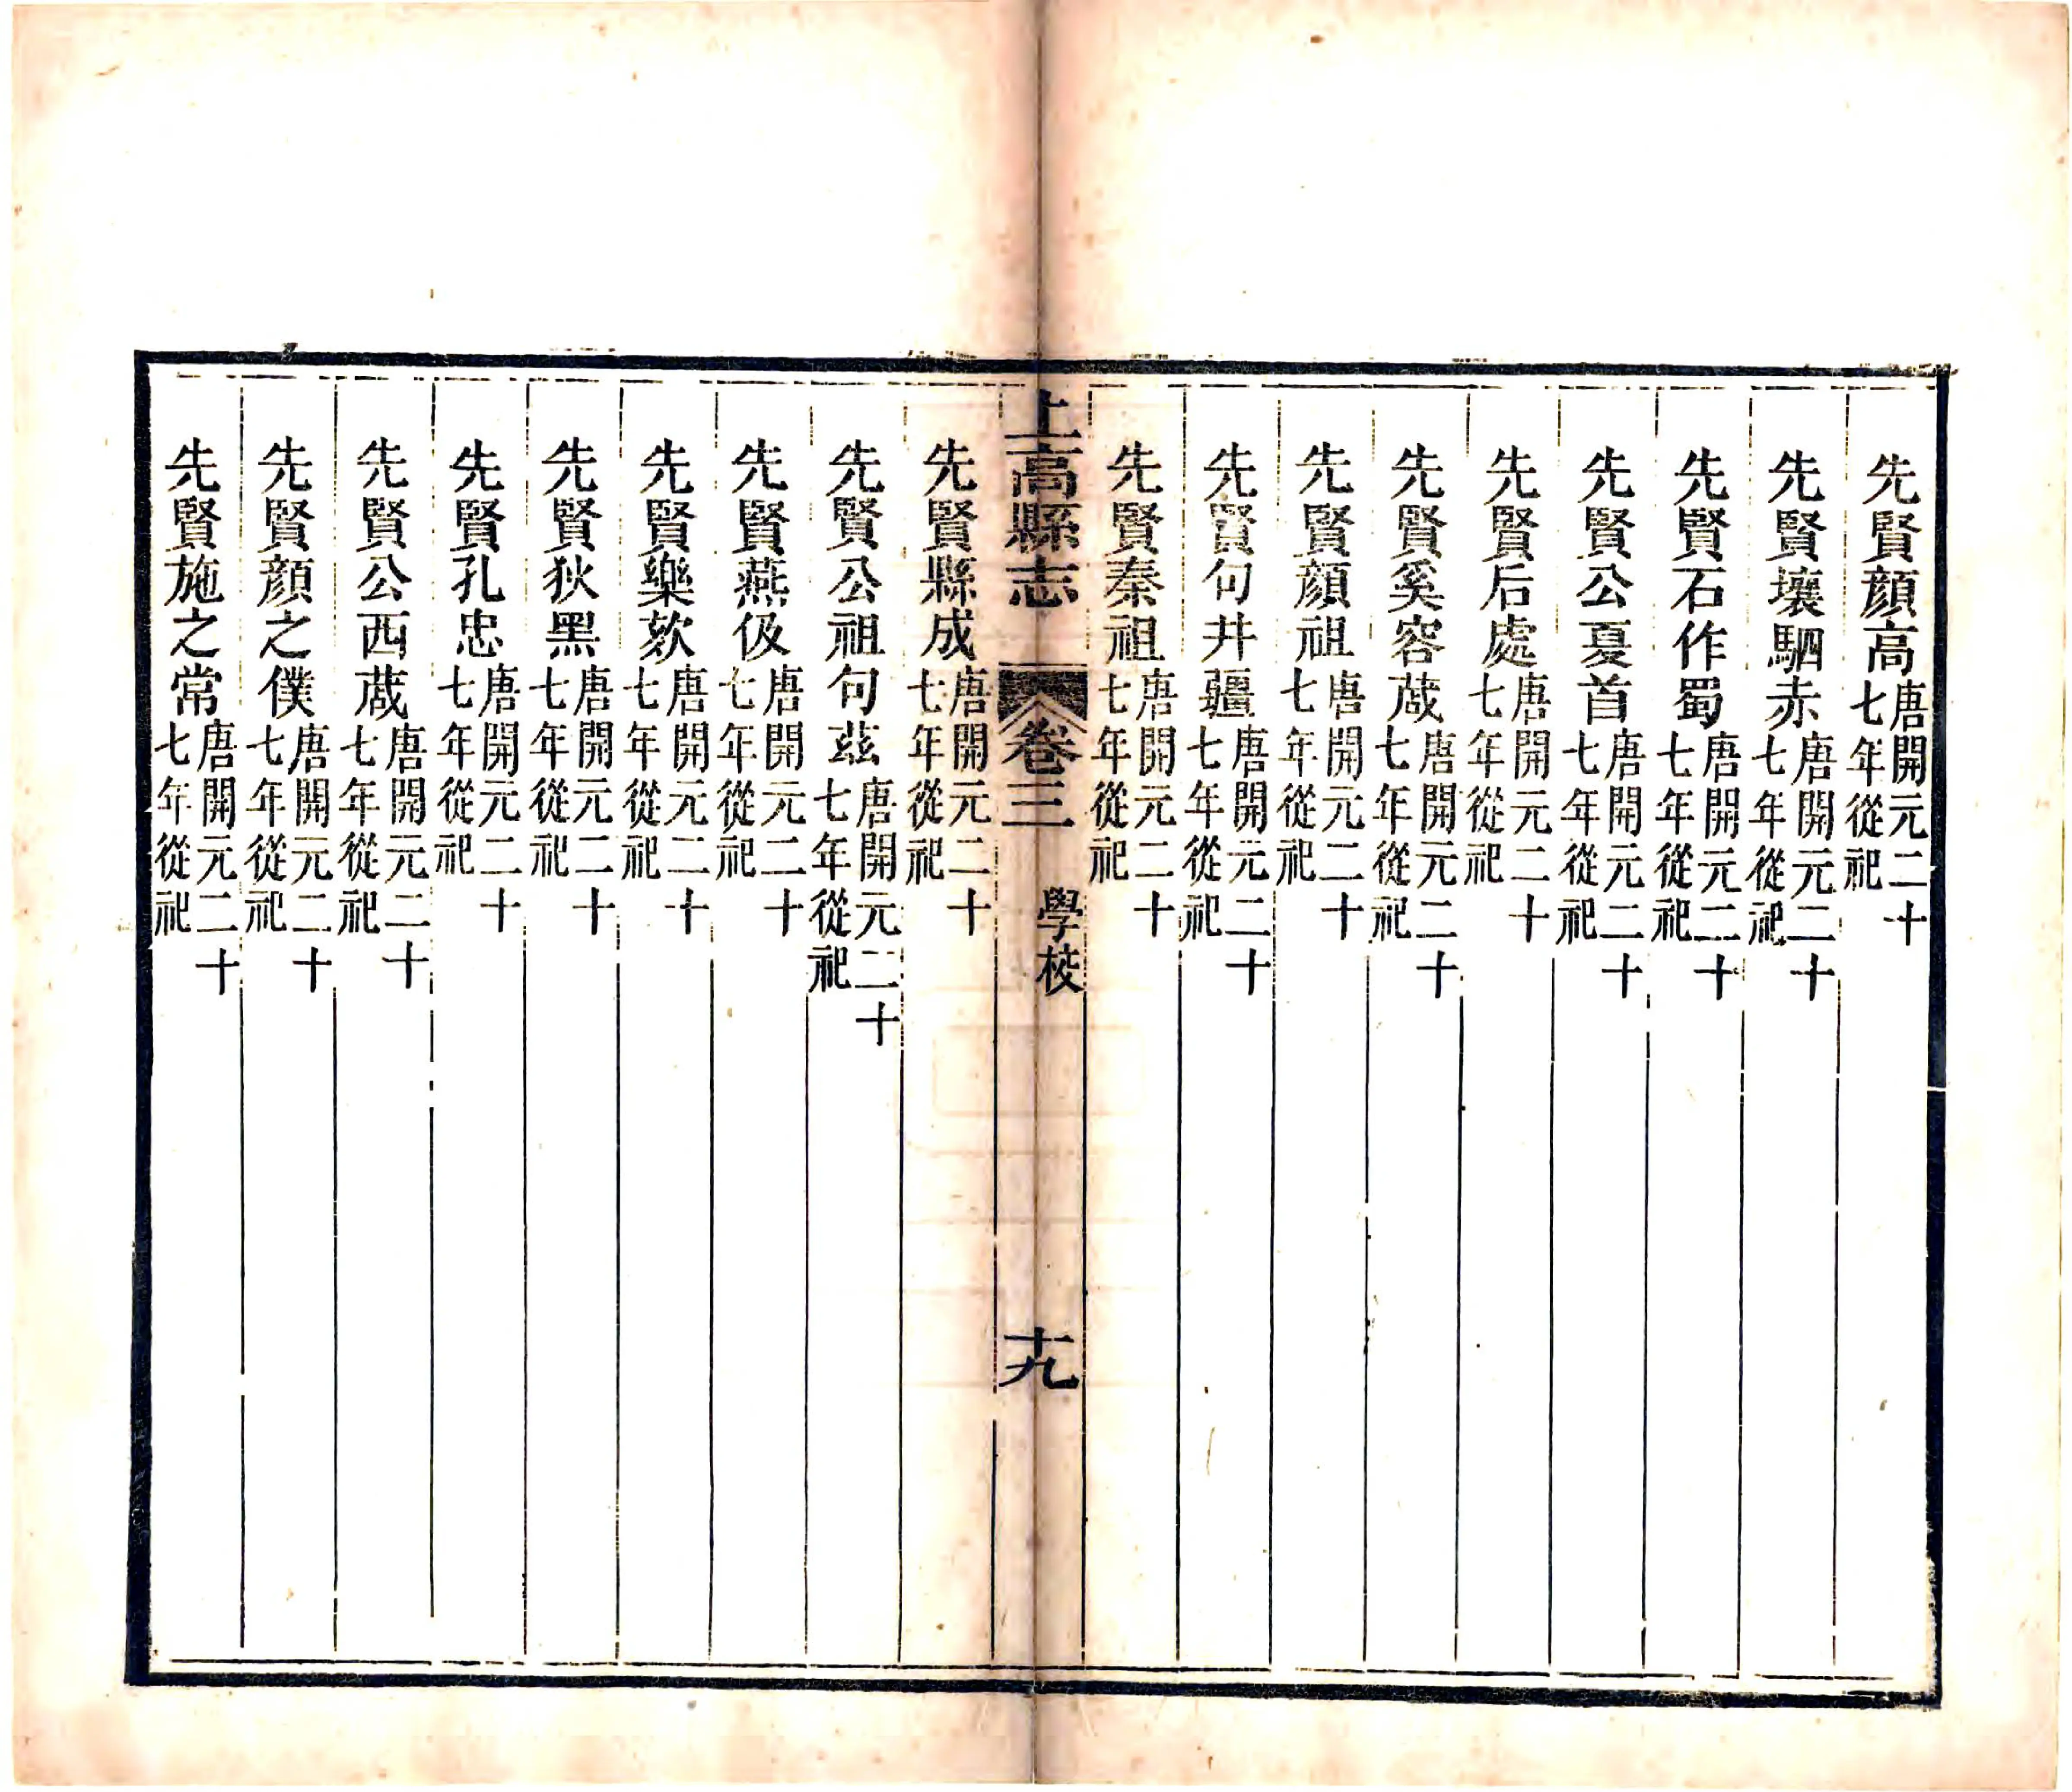 先賢顔高唐開元二十七年從祀
先賢壤駟赤唐開元二十七年從祀
先賢石作蜀唐開元二十七年從祀
先賢公夏首唐開元二十七年從祀
先賢后處唐開元二十七年從祀
先賢奚容蒧唐開元二十七年從祀
先賢顔祖唐開元二十七年從祀
先賢句井疆唐開元二十七年從祀
先賢秦祖唐開元二十七年從祀
上高縣志 卷三 學校 十九
先賢縣成唐開元二十七年從祀
先賢公祖句茲唐開元二十七年從祀
先賢燕伋唐開元二十七年從祀
先賢樂欬唐開元二十七年從祀
先賢狄黑唐開元二十七年從祀
先賢孔忠唐開元二十七年從祀
先賢公西蒧唐開元二十七年從祀
先賢顔之僕唐開元二十七年從祀
先賢施之常唐開元二十七年從祀